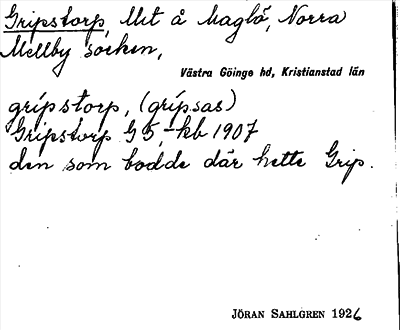 Gripstorp, Mit å Maglö, Norra
Mellby socken,
Västra Göinge hd, Kristianstad län
grípstorp, (grípsas)
Gripstorp G 5, -kb 1907
den som bodde där hette Grip.
JÖRAN SAHLGREN 1926